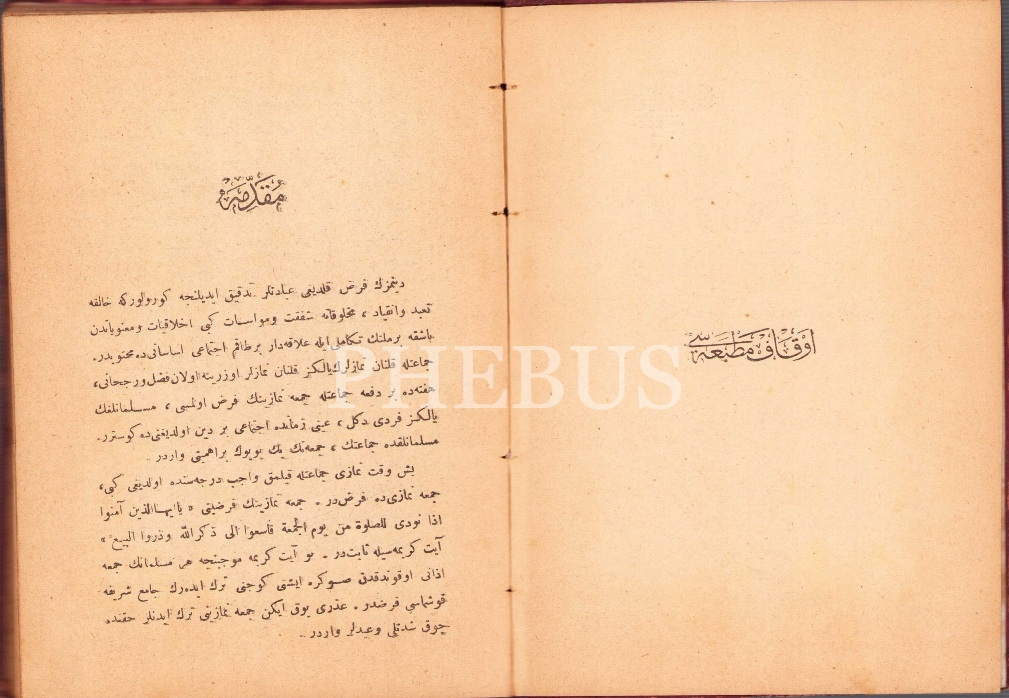 اوقاف مطبعه سی
مقدمه
دینمزك فرض قلدیغی عبادتلر تدقیق ایدیلنجه كورولوركه خالقه
تعبد وانقیاد ، مخلوقاته شفقت ومواسات كبی اخلاقیات ومعنویاتدن
باشقه برملتك تكاملی ایله علاقه‌دار برطاقم اجتماعی اساساتی‌ده محتویدر.
جماعتله قلنان نمازلرك یالكز قلنان نمازلر اوزرینه اولان فضل ورجحانی ،
هفته‌ده بر دفعه جماعتله جمعه نمازینك فرض اولمسی ، مسلمانلغك
یالكز فردی دكل ، عینی زمانده اجتماعی بر دین اولدیغنی‌ده كوسترر.
مسلمانلقده جماعتك ، جمعه‌نك پك بویوك براهمیتی واردر .
بش وقت نمازی جماعتله قیلمق واجب درجه‌سنده اولدیغی كبی ،
جمعه نمازی‌ده فرض‌در . جمعه نمازینك فرضیتی « یاایهاالذین آمنوا
اذا نودی للصلوة من یوم الجمعة فاسعوا الی ذكرالله وذروا البیع »
آیت كریمه‌سیله ثابت‌در . بو آیت كریمه موجبنجه هر مسلمانك جمعه
اذانی اوقوندقدن صوكره ایشنی كوجنی ترك ایده‌رك جامع شریفه
قوشماسی فرضدر . عذری یوق ایكن جمعه نمازینی ترك ایدنلر حقنده
چوق شدتلی وعیدلر واردر .
PHEBUS